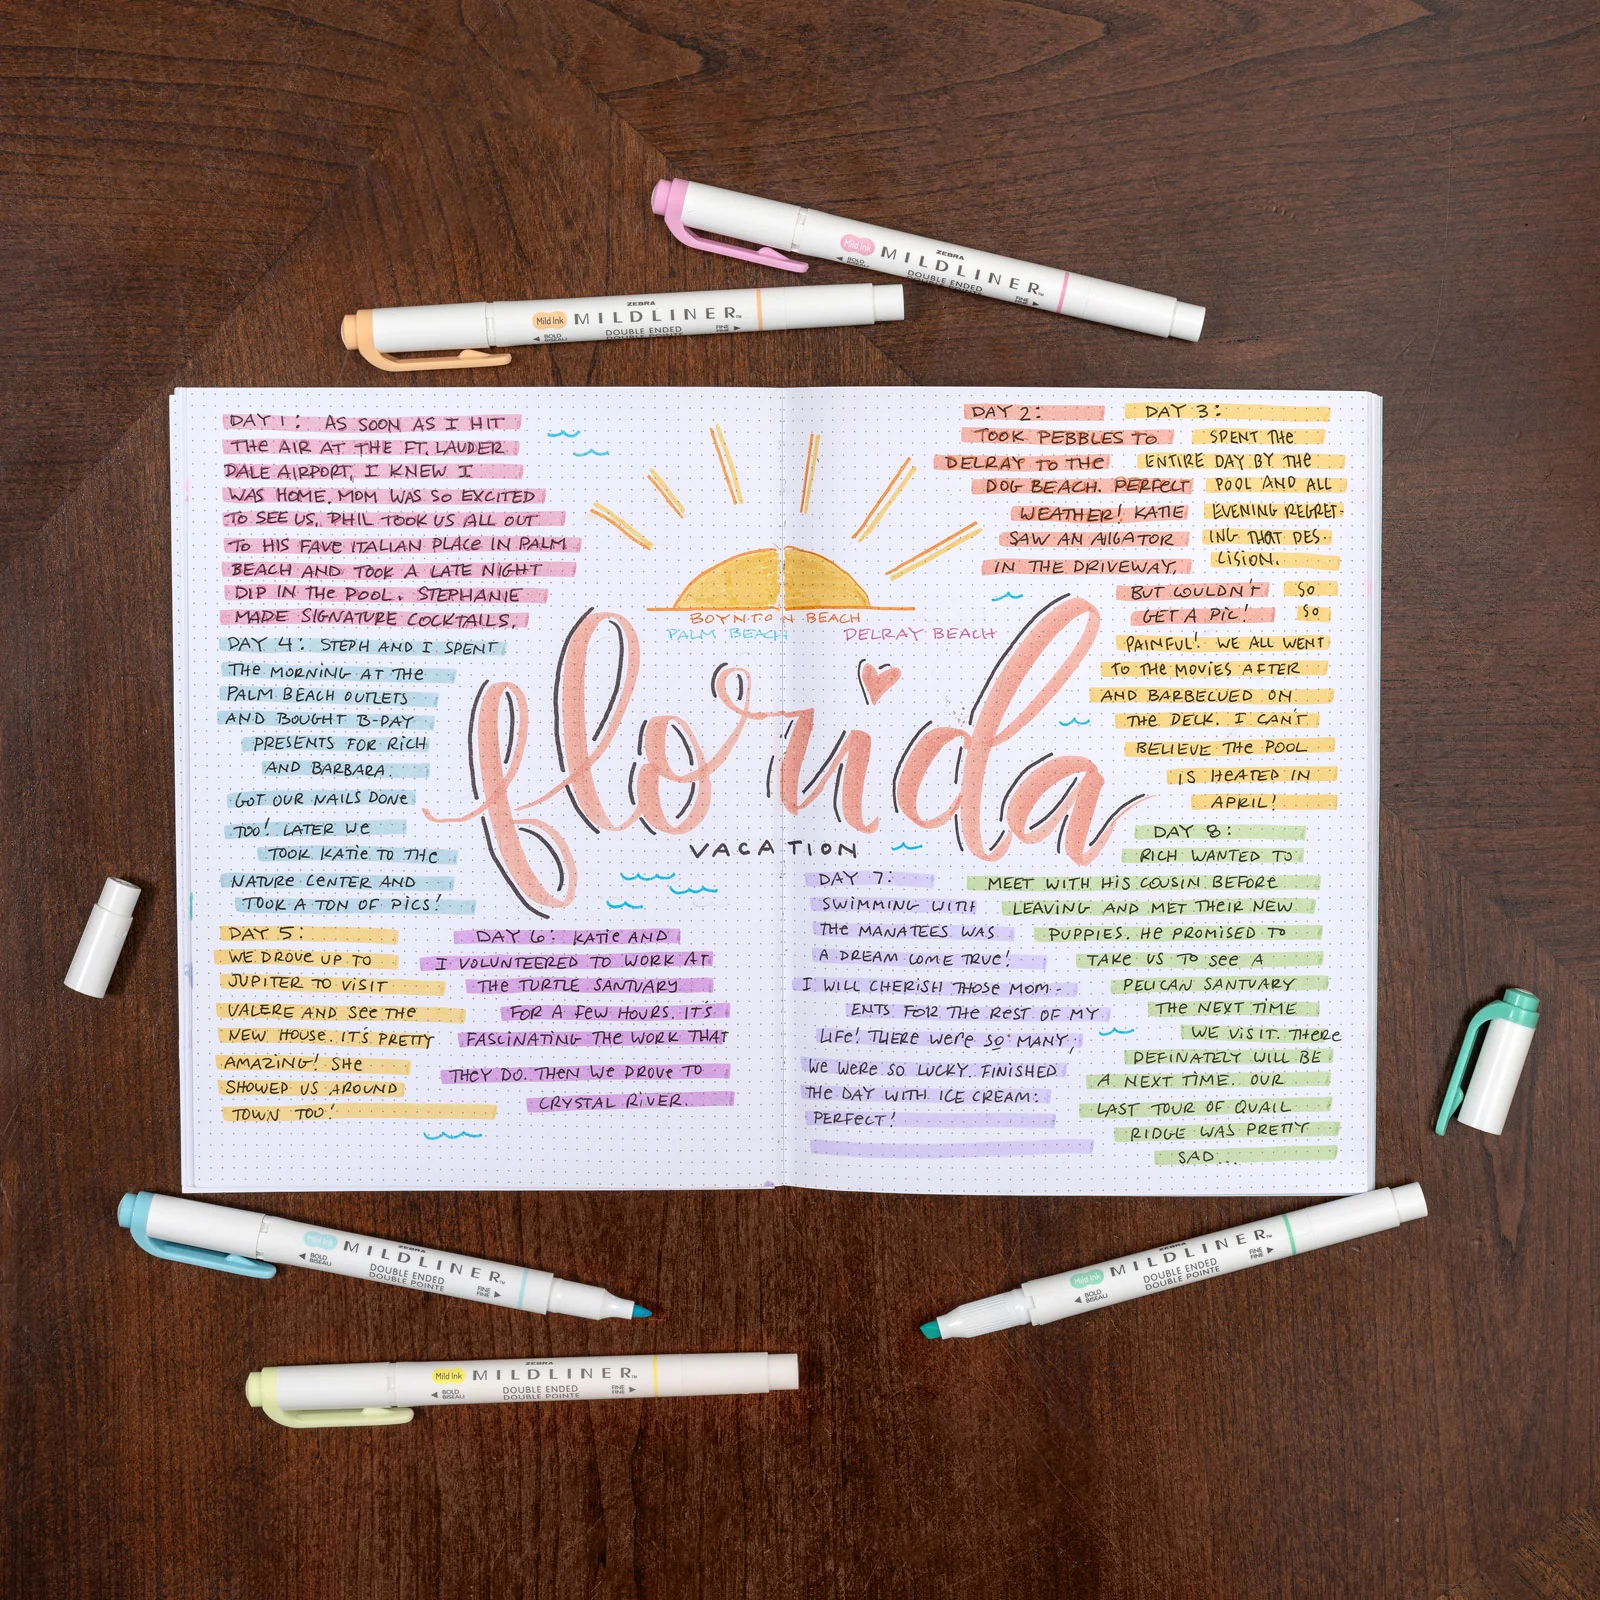 ZEBRA
Mild Ink MILDLINER™
BOLD
DOUBLE ENDED
FINE
ZEBRA
Mild Ink MILDLINER™
BOLD
BISEAU
DOUBLE ENDED
DOUBLE POINTE
FINE
FINE
DAY 1: AS SOON AS I HIT
THE AIR AT THE FT. LAUDER
DALE AIRPORT, I KNEW I
WAS HOME. MOM WAS SO EXCITED
TO SEE US. PHIL TOOK US ALL OUT
TO HIS FAVE ITALIAN PLACE IN PALM
BEACH AND TOOK A LATE NIGHT
DIP IN THE POOL. STEPHANIE
MADE SIGNATURE COCKTAILS.
DAY 2:
TOOK PEBBLES TO
DELRAY TO THE
DOG BEACH. PERFECT
WEATHER! KATIE
SAW AN AlIGATOR
IN THE DRIVEWAY,
BUT COULDN'T
GET A PIC!
DAY 3:
SPENT THE
ENTIRE DAY BY THE
POOL AND ALL
EVENING REGRET-
ING THAT DES-
CISION.
SO
SO
PAINFUL! WE ALL WENT
TO THE MOVIES AFTER
AND BARBECUED ON
THE DECK. I CAN'T
BELIEVE THE POOL
IS HEATED IN
APRIL!
BOYNTON BEACH
PALM BEACH DELRAY BEACH
florida
VACATION
DAY 4: STEPH AND I SPENT
THE MORNING AT THE
PALM BEACH OUTLETS
AND BOUGHT B-DAY
PRESENTS FOR RICH
AND BARBARA.
GOT OUR NAILS DONE
TOO! LATER WE
TOOK KATIE TO THE
NATURE CENTER AND
TOOK A TON OF PICS!
DAY 5:
WE DROVE UP TO
JUPITER TO VISIT
VALERE AND SEE THE
NEW HOUSE. IT'S PRETTY
AMAZING! SHE
SHOWED US AROUND
TOWN TOO!
DAY 6: KATIE AND
I VOLUNTEERED TO WORK AT
THE TURTLE SANTUARY
FOR A FEW HOURS. IT'S
FASCINATING THE WORK THAT
THEY DO. THEN WE DROVE TO
CRYSTAL RIVER.
DAY 7:
SWIMMING WITH
THE MANATEES WAS
A DREAM COME TRUE!
I WILL CHERISH THOSE MOM-
ENTS FOR THE REST OF MY
LIFE! THERE WERE SO MANY;
WE WERE SO LUCKY. FINISHED
THE DAY WITH ICE CREAM:
PERFECT!
DAY 8:
RICH WANTED TO
MEET WITH HIS COUSIN BEFORE
LEAVING AND MET THEIR NEW
PUPPIES. HE PROMISED TO
TAKE US TO SEE A
PELICAN SANTUARY
THE NEXT TIME
WE VISIT. THERE
DEFINATELY WILL BE
A NEXT TIME. OUR
LAST TOUR OF QUAIL
RIDGE WAS PRETTY
SAD...
ZEBRA
Mild Ink MILDLINER™
BOLD
BISEAU
DOUBLE ENDED
DOUBLE POINTE
FINE
FINE
ZEBRA
Mild Ink MILDLINER™
BOLD
BISEAU
DOUBLE ENDED
DOUBLE POINTE
FINE
FINE
ZEBRA
Mild Ink MILDLINER™
BOLD
BISEAU
DOUBLE ENDED
DOUBLE POINTE
FINE
FINE